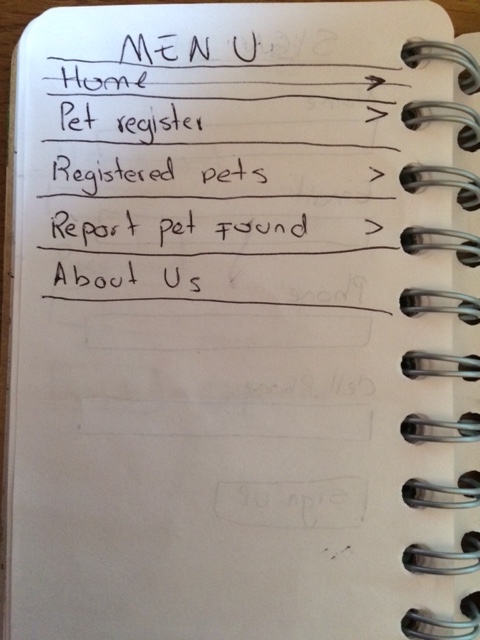 MENU
Home >
Pet register >
Registered pets >
Report pet found >
About Us